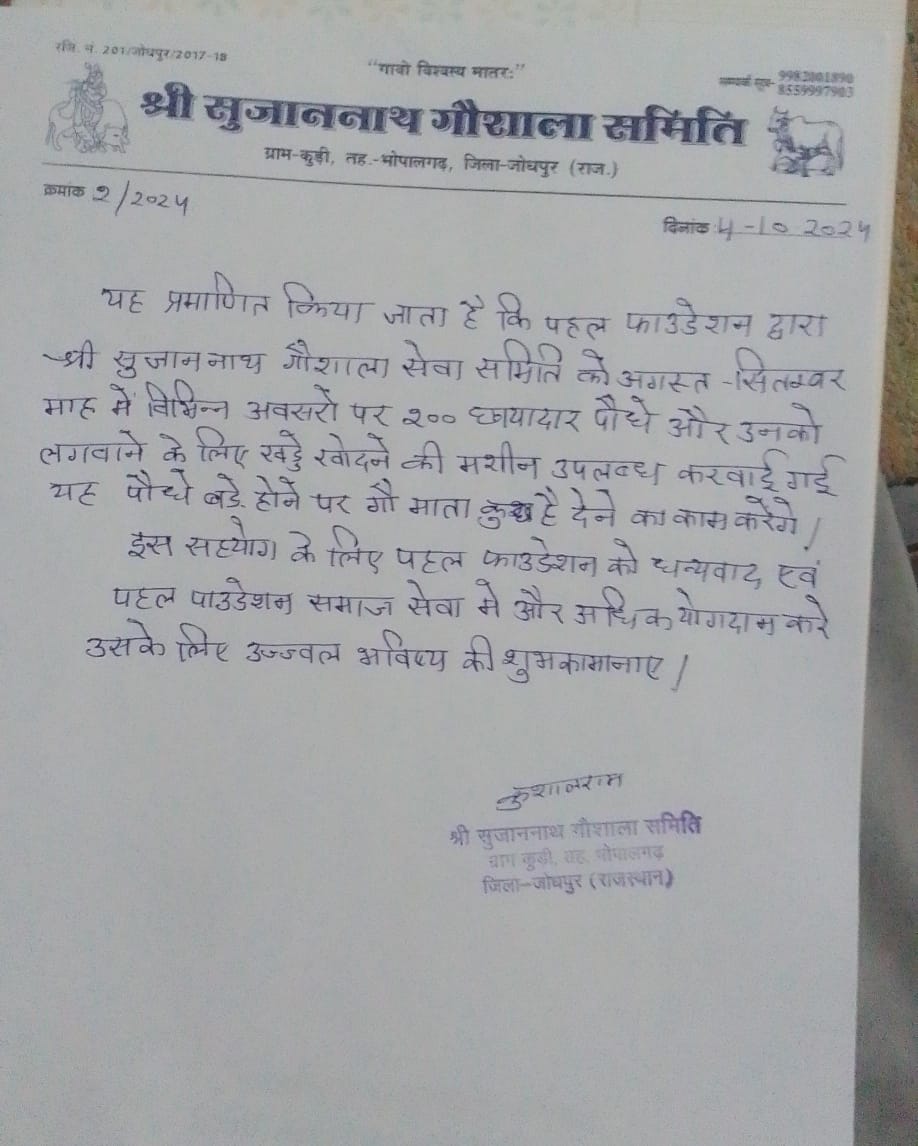 रजि. नं. 201/जोधपुर/2017-18
"गावो विश्वस्य मातरः"
सम्पर्क सूत्र- 9982001890
8559997903
श्री सुजाननाथ गौशाला समिति
ग्राम-कुड़ी, तह.-भोपालगढ़, जिला-जोधपुर (राज.)
क्रमांक 2/2024
दिनांक 4-10 2024
यह प्रमाणित किया जाता है कि पहल फाउडेशन द्वारा
श्री सुजाननाथ गौशाला सेवा समिति को अगस्त -सितम्वर
माह में विभिन्न अवसरों पर २०० छायादार पौधे और उनको
लगवाने के लिए खड्डे खोदने की मशीन उपलब्ध करवाई गई
यह पौधे बडे होने पर गौ माता है देने का काम करेंगे।
इस सहयोग के लिए पहल फाउडेशन को धन्यवाद एवं
पहल पाउडेशन समाज सेवा मे और अधिक योगदान करे
उसके लिए उज्ज्वल भविष्य की शुभकामानाए।
कुशालराम
श्री सुजाननाथ गौशाला समिति
ग्राम कुड़ी, तह. भोपालगढ़
जिला-जोधपुर (राजस्थान)